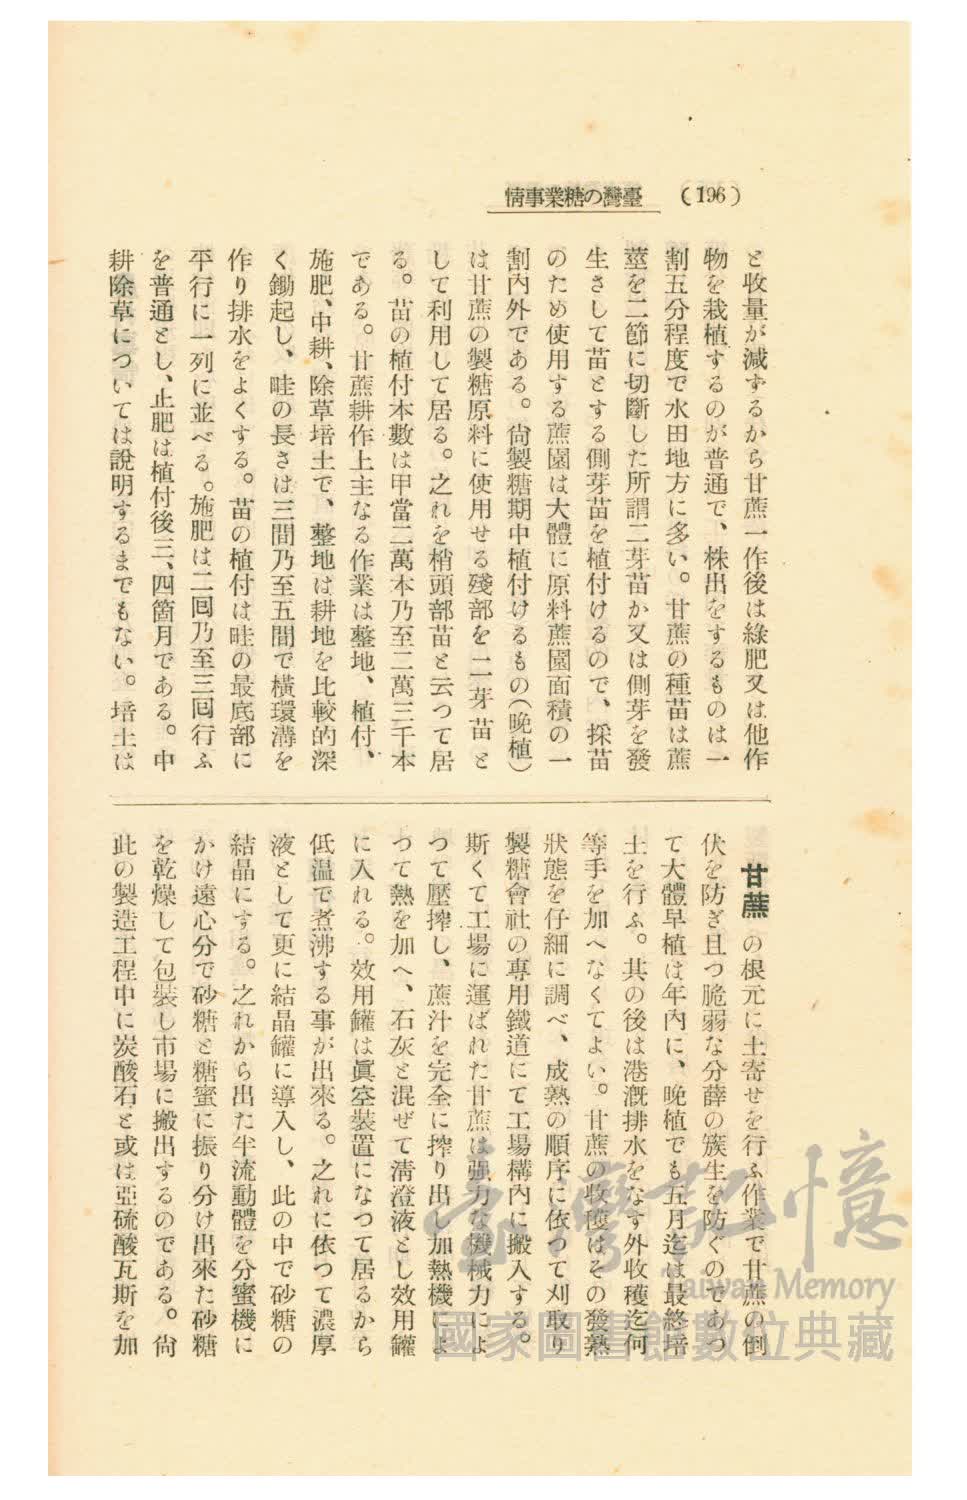 (196)
臺灣の糖業事情
と收量が減ずるから甘蔗一作後は綠肥又は他作
物を栽植するのが普通で、株出をするものは一
割五分程度で水田地方に多い。甘蔗の種苗は蔗
莖を二節に切斷した所謂二芽苗か又は側芽を發
生さして苗とする側芽苗を植付けるので、採苗
のため使用する蔗園は大體に原料蔗園面積の一
割內外である。尙製糖期中植付けるもの(晚植)
は甘蔗の製糖原料に使用せる殘部を二芽苗と
して利用して居る。之れを梢頭部苗と云つて居
る。苗の植付本數は甲當二萬本乃至二萬三千本
である。甘蔗耕作上主なる作業は整地、植付、
施肥、中耕、除草培土で、整地は耕地を比較的深
く鋤起し、畦の長さは三間乃至五間で橫環溝を
作り排水をよくする。苗の植付は畦の最底部に
平行に一列に並べる。施肥は二回乃至三回行ふ
を普通とし、止肥は植付後三、四箇月である。中
耕除草については說明するまでもない。培土は
甘蔗の根元に土寄せを行ふ作業で甘蔗の倒
伏を防ぎ且つ脆弱な分蘖の簇生を防ぐのであつ
て大體早植は年內に、晚植でも五月迄は最終培
土を行ふ。其の後は港漑排水をなす外收穫迄何
等手を加へなくてよい。甘蔗の收穫はその發熟
狀態を仔細に調べ、成熟の順序に依つて刈取り
製糖會社の專用鐵道にて工場構內に搬入する。
斯くて工場に運ばれた甘蔗は强力な機械力によ
つて壓搾し、蔗汁を完全に搾り出し加熱機によ
つて熱を加へ、石灰と混ぜて淸澄液とし效用罐
に入れる。效用罐は眞空裝置になつて居るから
低溫で煮沸する事が出來る。之れに依つて濃厚
液として更に結晶罐に導入し、此の中で砂糖の
結晶にする。之れから出た半流動體を分蜜機に
かけ遠心分で砂糖と糖蜜に振り分け出來た砂糖
を乾燥して包裝し市場に搬出するのである。尙
此の製造工程中に炭酸石と或は亞硫酸瓦斯を加
臺灣記憶
Taiwan Memory
國家圖書館數位典藏